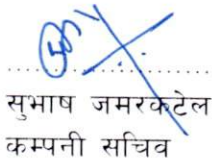 सुभाष जमरकटेल
कम्पनी सचिव